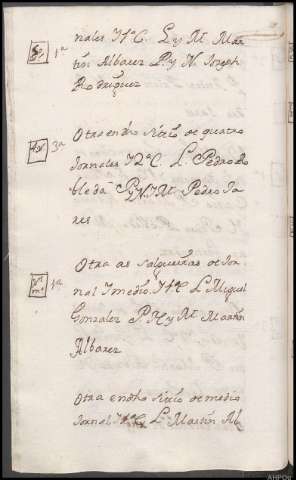 nales 1ª C. L y Mt Mar
tin Albarez P. y N Joseph
Rodriguez
1ª
Otra en dho sitio de quatro
3ª
Jornales 2ª C. L. Pedro Ro
bleda P y N, y Mt. Pedro Ja
res
Otra as Salgueiras de Jor
nal y medio. 1ª C L Miguel
1ª
Gonzalez P. N y Mt Martin
Albarez
Otra en dho sitio de medio
Jornal 1ª C, L Martin Al
AHPOu